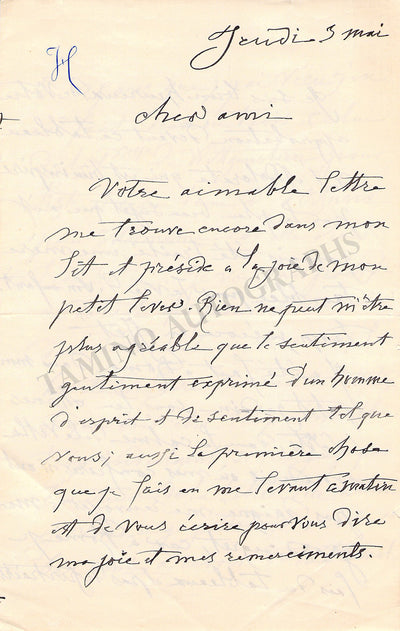 Jeudi 3 mai
H
cher ami
Votre aimable lettre
me trouve encore dans mon
lit et préside a la joie de mon
petit lever. Rien ne peut m'être
plus agréable que le sentiment
gentiment exprimé d'un homme
d'esprit et de sentiment tel que
vous; aussi la première chose
que je fais en me levant ce matin
est de vous écrire pour vous dire
ma joie et mes remerciments.
TAMINO AUTOGRAPHS